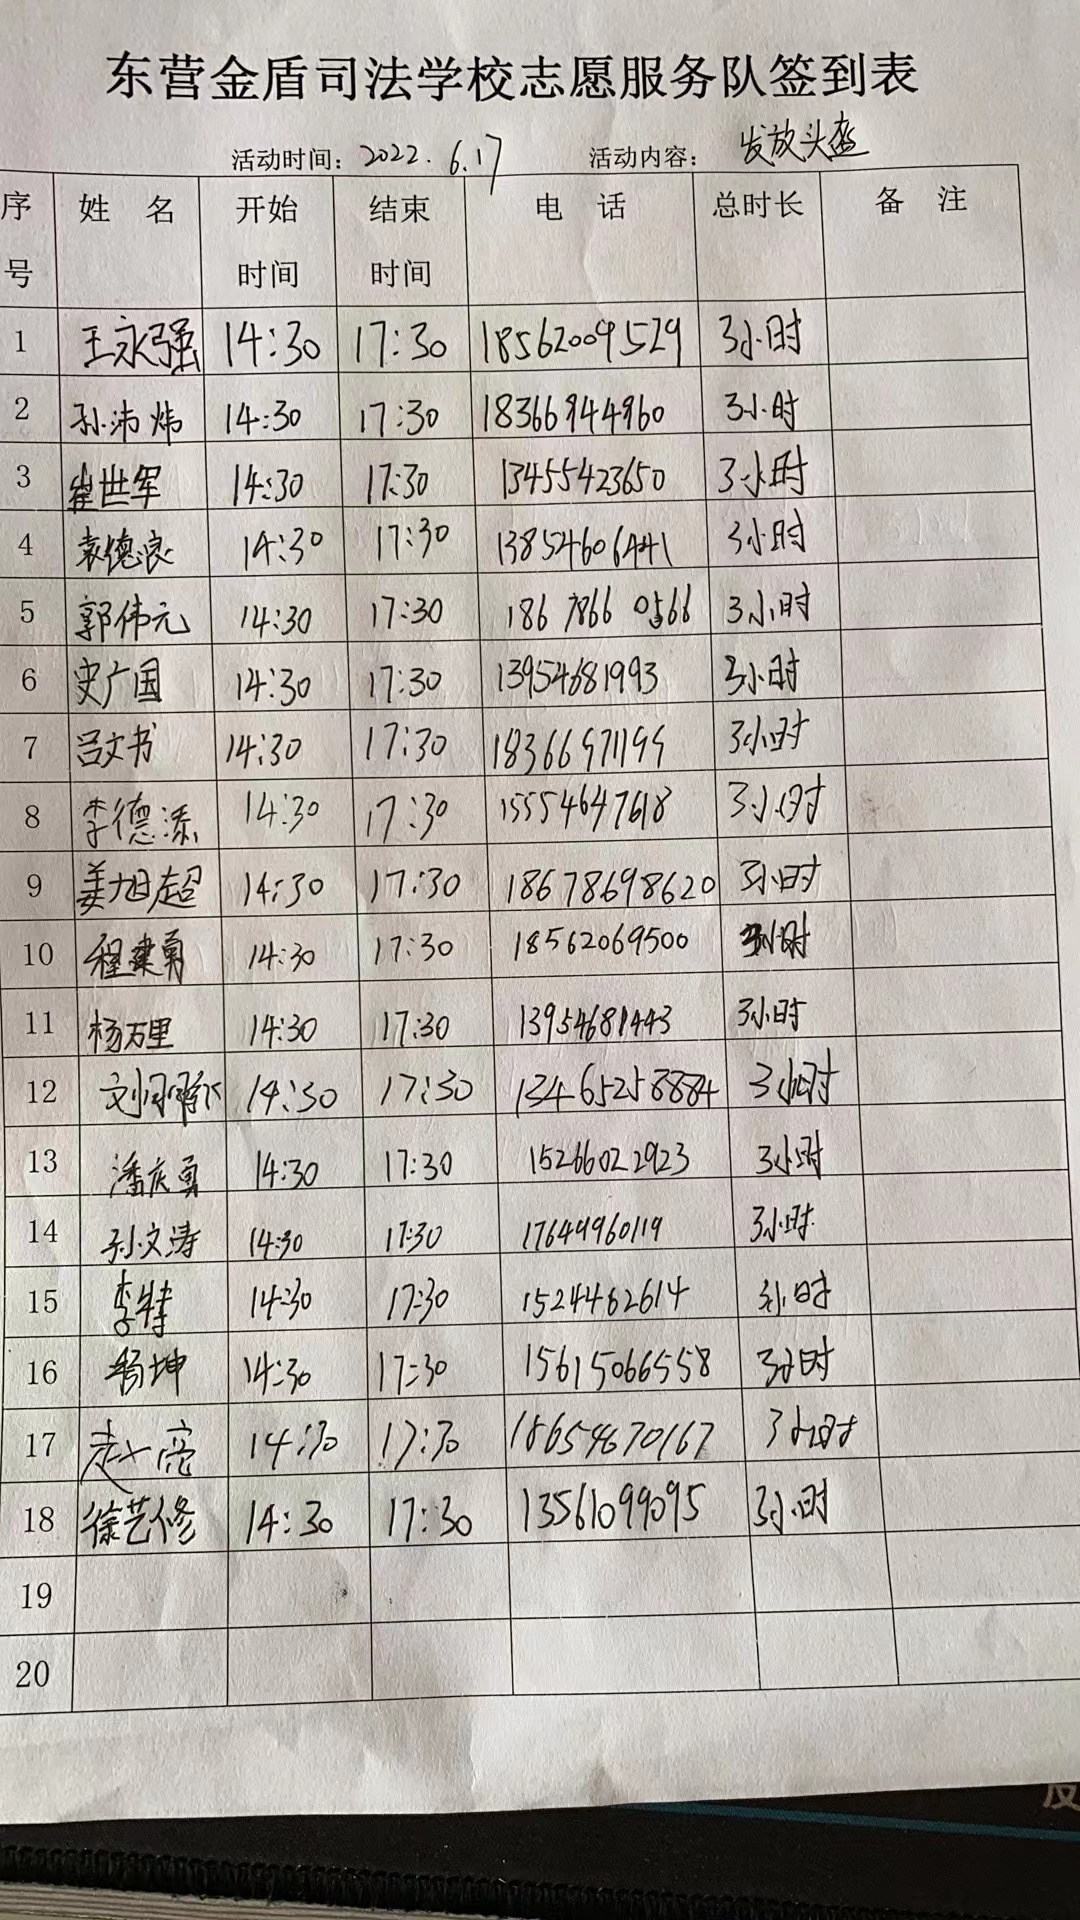 东营金盾司法学校志愿服务队签到表
活动时间：2022.6.17 活动内容：发放头盔
序号 姓名 开始时间 结束时间 电话 总时长 备注
1 王永强 14:30 17:30 18562009529 3小时
2 孙沛炜 14:30 17:30 18366944960 3小时
3 崔世军 14:30 17:30 13455423650 3小时
4 袁德浪 14:30 17:30 13854606441 3小时
5 郭伟元 14:30 17:30 186 7866 0566 3小时
6 史广国 14:30 17:30 13954681993 3小时
7 吕文书 14:30 17:30 18366971199 3小时
8 李德添 14:30 17:30 15554647618 3小时
9 姜旭超 14:30 17:30 18678698620 3小时
10 程建勇 14:30 17:30 18562069500 3小时
11 杨万里 14:30 17:30 13954681443 3小时
12 14:30 17:30 13465258884 3小时
13 潘庆勇 14:30 17:30 15266022923 3小时
14 孙文涛 14:30 17:30 17649960119 3小时
15 李特 14:30 17:30 1524462614 3小时
16 杨坤 14:30 17:30 15615066558 3小时
17 赵亮 14:30 17:30 18654670167 3小时
18 徐艺修 14:30 17:30 13561099095 3小时
19
20